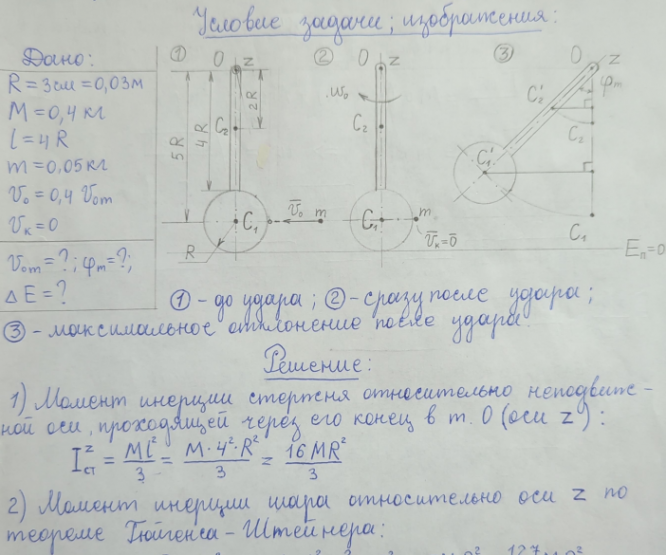 Условие задачи; изображения:
Дано:
R = 3см = 0,03м
M = 0,4 кг
l = 4R
m = 0,05 кг
υ₀ = 0,4 υ₀m
υк = 0
υ₀m = ?; φm = ?;
ΔE = ?
① O z 5R 4R 2R C₂ C₁ R υ̅₀ m
② O z ω₀ C₂ C₁ m υ̅к = 0̅
③ O z φm C₂' C₂ C₁' C₁
Eп = 0
① - до удара; ② - сразу после удара;
③ - максимальное отклонение после удара.
Решение:
1) Момент инерции стертсня относительно неподвиж-
ной оси, проходящей через его конец в т. O (оси z):
I^z_ст = Ml²/3 = M·4²·R²/3 = 16MR²/3
2) Момент инерции шара относительно оси z по
теореме Гюйгенса-Штейнера: